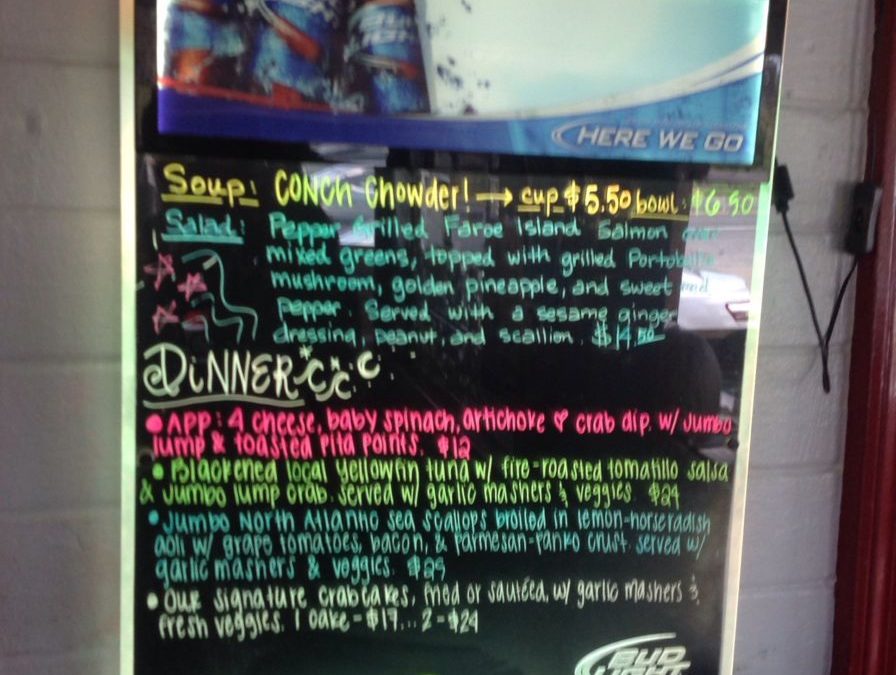 BUD LIGHT
HERE WE GO
Soup: CONCH Chowder! → cup $5.50 bowl: $6.50
Salad: Pepper Grilled Faroe Island Salmon over
mixed greens, topped with grilled Portobello
mushroom, golden pineapple, and sweet red
pepper. Served with a sesame ginger
dressing, peanut, and scallion. $14.50
DiNNER
• APP: 4 cheese, baby spinach, artichoke & crab dip w/ Jumbo
lump & toasted pita points. $12
• Blackened local yellowfin tuna w/ fire-roasted tomatillo salsa
& Jumbo lump crab. served w/ garlic mashers & veggies. $24
• Jumbo North Atlantic sea scallops broiled in lemon-horseradish
aoli w/ grape tomatoes, bacon, & parmesan-panko crust. served w/
garlic mashers & veggies. $25
• Our signature crabcakes, fried or sautéed, w/ garlic mashers &
fresh veggies. 1 cake - $17... 2 - $24
BUD
LIGHT